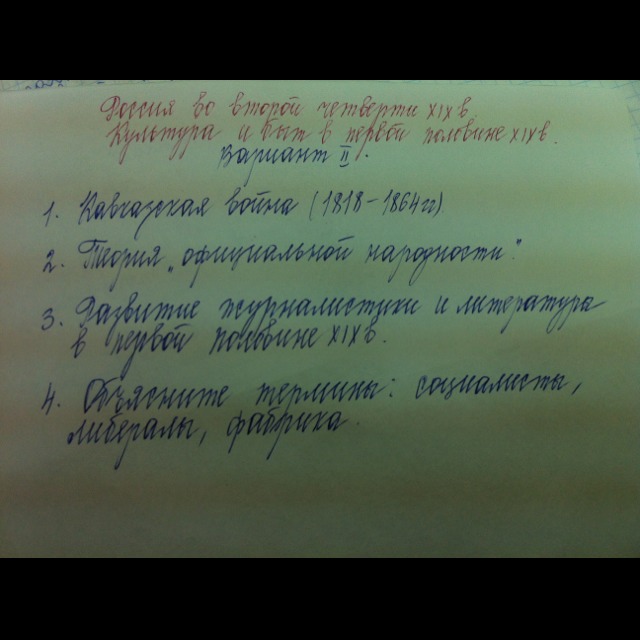 Россия во второй четверти XIX в.
Культура и быт в первой половине XIX в.
Вариант II.
1. Кавказская война (1818-1864 гг)
2. Теория „официальной народности".
3. Развитие журналистики и литература
в первой половине XIX в.
4. Объясните термины: социалисты,
либералы, фабрика.